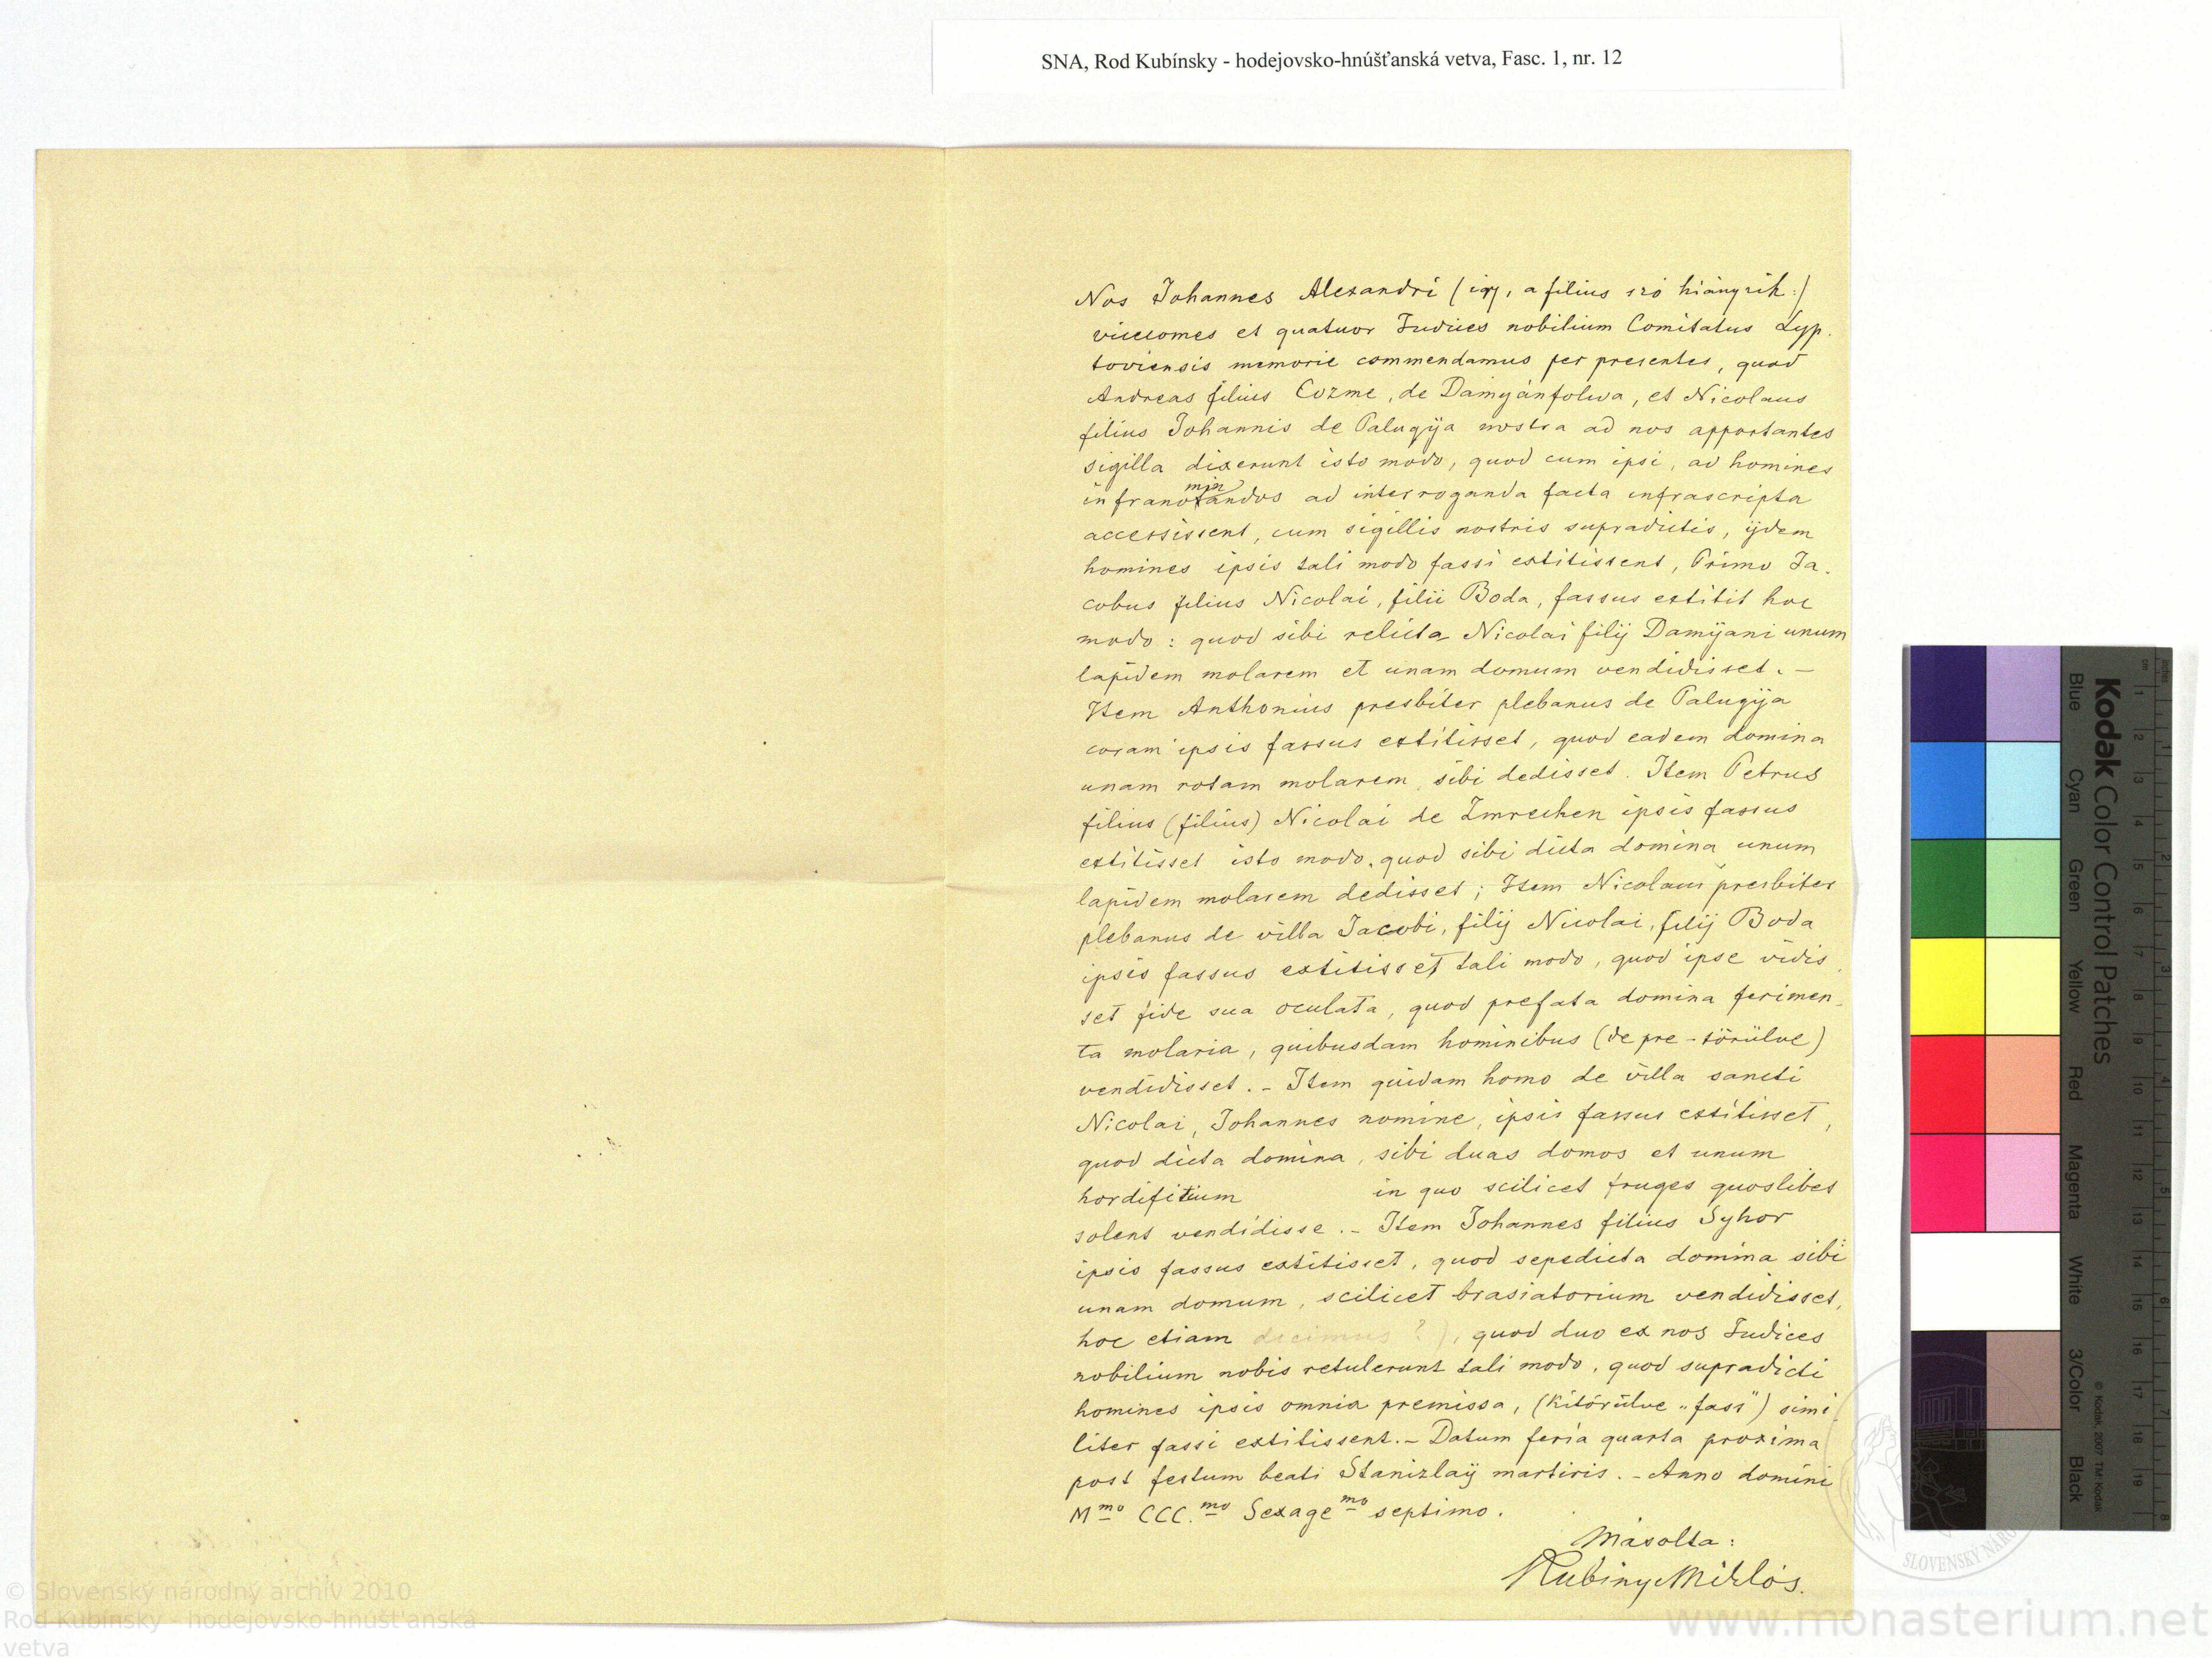 SNA, Rod Kubínsky - hodejovsko-hnúšťanská vetva, Fasc. 1, nr. 12
Nos Johannes Alexandri (így, a filius szó hiányzik:)
vicecomes et quatuor Judices nobilium Comitatus Lyp-
toviensis memorie commendamus per presentes, quod
Andreas filius Cozme, de Damyánfolwa, et Nicolaus
filius Johannis de Palugÿa nostra ad nos apportantes
sigilla dixerunt isto modo, quod cum ipsi, ad homines
min
infranotandos ad interroganda facta infrascripta
accessissent, cum sigillis nostris supradictis, ijdem
homines ipsis tali modo fassi extitissent, Primo Ja-
cobus filius Nicolai, filii Boda, fassus extitit hoc
modo: quod sibi relicta Nicolai filij Damÿani unum
lapidem molarem et unam domum vendidisset. -
Item Anthonius presbiter plebanus de Palugÿa
coram ipsis fassus extitisset, quod eadem domina
unam rotam molarem, sibi dedisset. Item Petrus
filius (filius) Nicolai de Imrechen ipsis fassus
extitisset isto modo, quod sibi dicta domina unum
lapidem molarem dedisset; Item Nicolaus presbiter
plebanus de villa Jacobi, filij Nicolai, filij Boda
ipsis fassus extitisset tali modo, quod ipse vidis-
set fide sua oculata, quod prefata domina ferimen-
ta molaria, quibusdam hominibus (de pre - törülve)
vendidisset. - Item quidam homo de villa sancti
Nicolai, Johannes nomine, ipsis fassus extitisset,
quod dicta domina, sibi duas domos et unum
hordifitium in quo scilicet fruges quoslibet
solent vendidisse. - Item Johannes filius Syhor
ipsis fassus extitisset, quod sepedicta domina sibi
unam domum, scilicet brasiatorium vendidisset,
hoc etiam dicimus ?), quod duo ex nos Judices
nobilium nobis retulerunt tali modo, quod supradicti
homines ipsis omnia premissa, (kitörülve „fass") simi-
liter fassi extitissent. - Datum feria quarta proxima
post festum beati Stanizlaÿ martiris. - Anno domini
Mmo CCC.mo Sexagemo septimo.
Másolta:
Kubinyi Miklós.
Kodak Color Control Patches
Blue Cyan Green Yellow Red Magenta White 3/Color Black
© Kodak, 2007 TM: Kodak
© Slovenský národný archív 2010
Rod Kubínsky - hodejovsko-hnúšťanská
vetva
www.monasterium.net